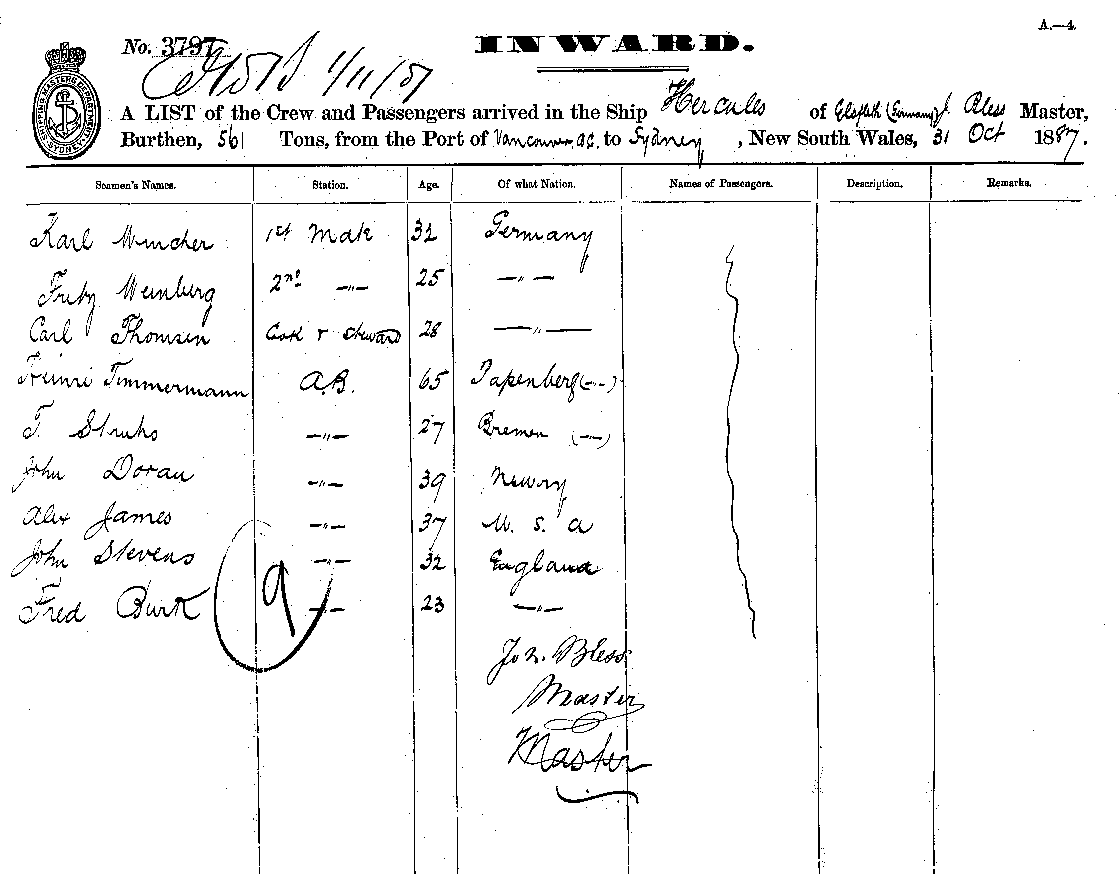 A.—4.
No. 3797
INWARD.
1/11/87
A LIST of the Crew and Passengers arrived in the Ship Hercules of Elsfleth (Germany) J. Bless Master,
Burthen, 561 Tons, from the Port of Vancouver B.C. to Sydney, New South Wales, 31 Oct 1887.
SHIPPING MASTERS DEPARTMENT SYDNEY
Seamen's Names. Station. Age. Of what Nation. Names of Passengers. Description. Remarks.
Karl 1st Mate 32 Germany
Fritz Weinberg 2nd —„— 25 —„—
Carl Thomsen Cook & Steward 28 —„—
Heinri Timmermann A.B. 65 Papenberg (—„—)
T. Struhs —„— 27 Bremen (—„—)
John Doran —„— 39 Newry
Alex James —„— 37 U. S. A
John Stevens —„— 32 England
Fred Burk —„— 23 —„—
9
Joh. Bless
Master
Master